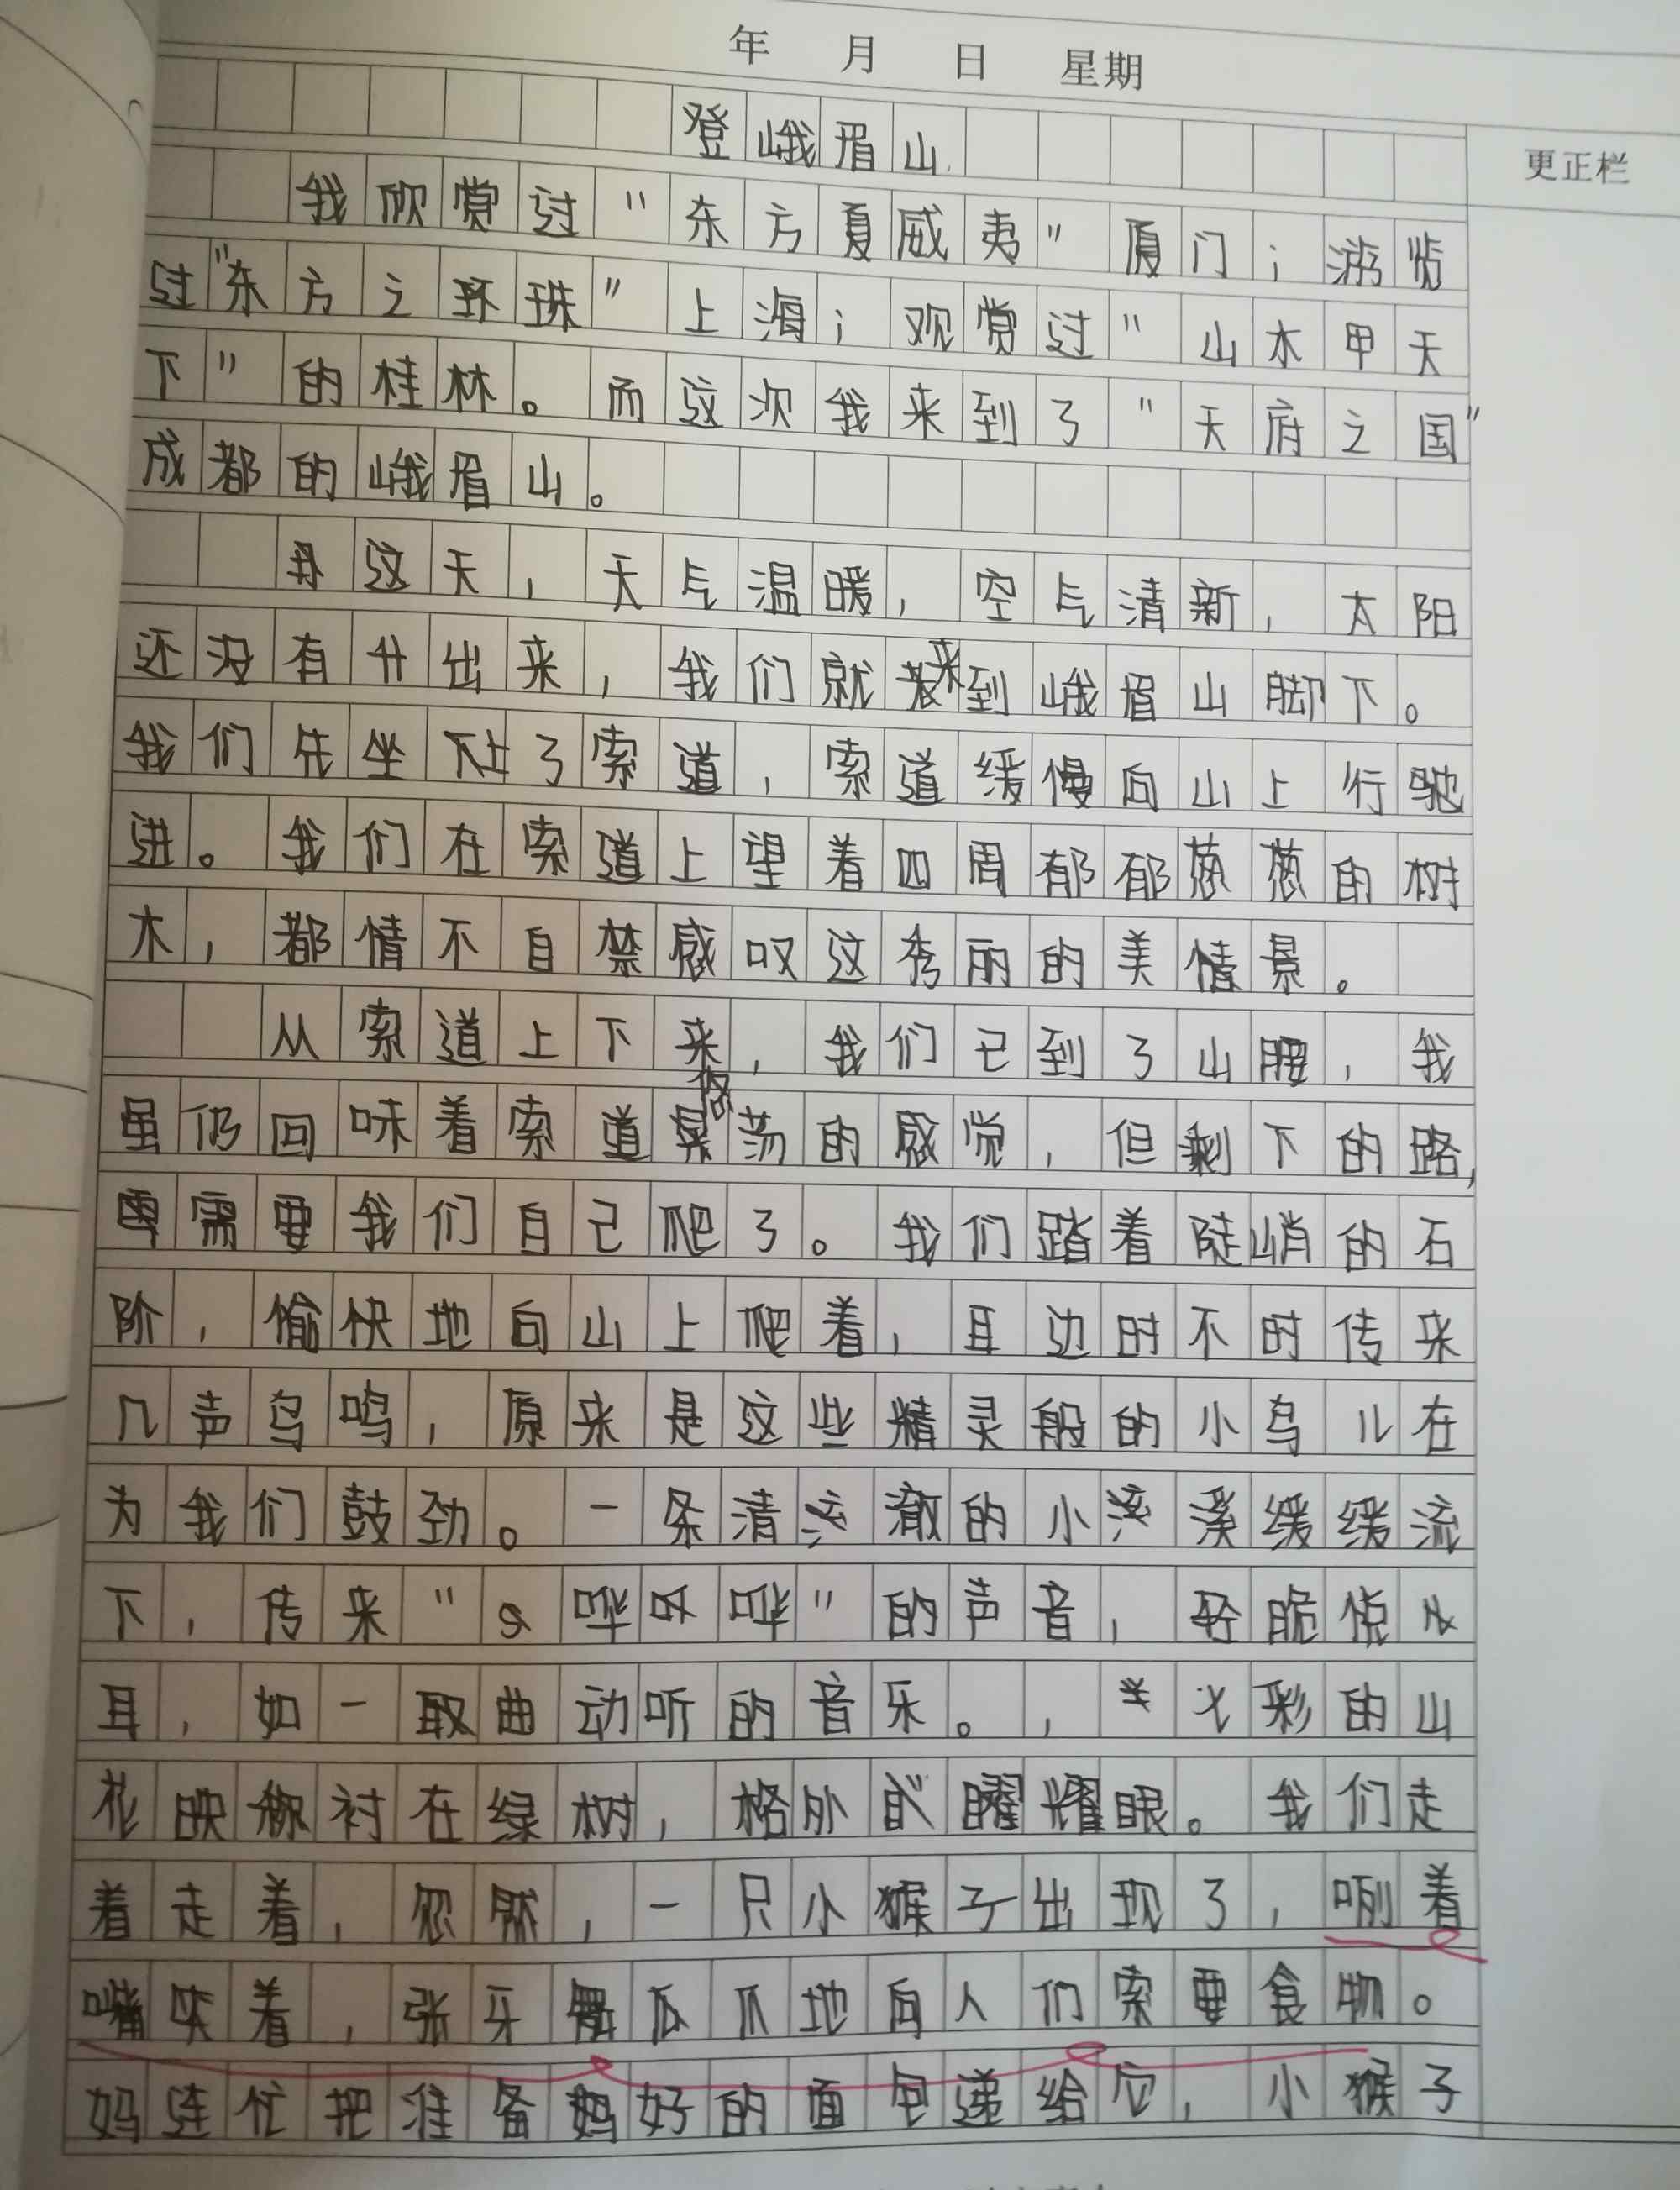 年 月 日 星期
更正栏
登峨眉山
我欣赏过“东方夏威夷”厦门；游览
过“东方之环珠”上海；观赏过“山水甲天
下”的桂林。而这次我来到了“天府之国”
成都的峨眉山。
这天，天气温暖，空气清新，太阳
还没有升出来，我们就来到峨眉山脚下。
我们先坐上了索道，索道缓慢向山上行驶
进。我们在索道上望着四周郁郁葱葱的树
木，都情不自禁感叹这秀丽的美景。
从索道上下来，我们已到了山腰，我
虽仍回味着索道悠荡的感觉，但剩下的路，
需要我们自己爬了。我们踏着陡峭的石
阶，愉快地向山上爬着，耳边时不时传来
几声鸟鸣，原来是这些精灵般的小鸟儿在
为我们鼓劲。一条清澈的小溪缓缓流
下，传来“哗哗”的声音，轻脆悦
耳，如一曲动听的音乐。，七彩的山
花映衬在绿树，格外耀眼。我们走
着走着，忽然，一只小猴子出现了，咧着
嘴笑着，张牙舞爪地向人们索要食物。
妈连忙把准备好的面包递给它，小猴子